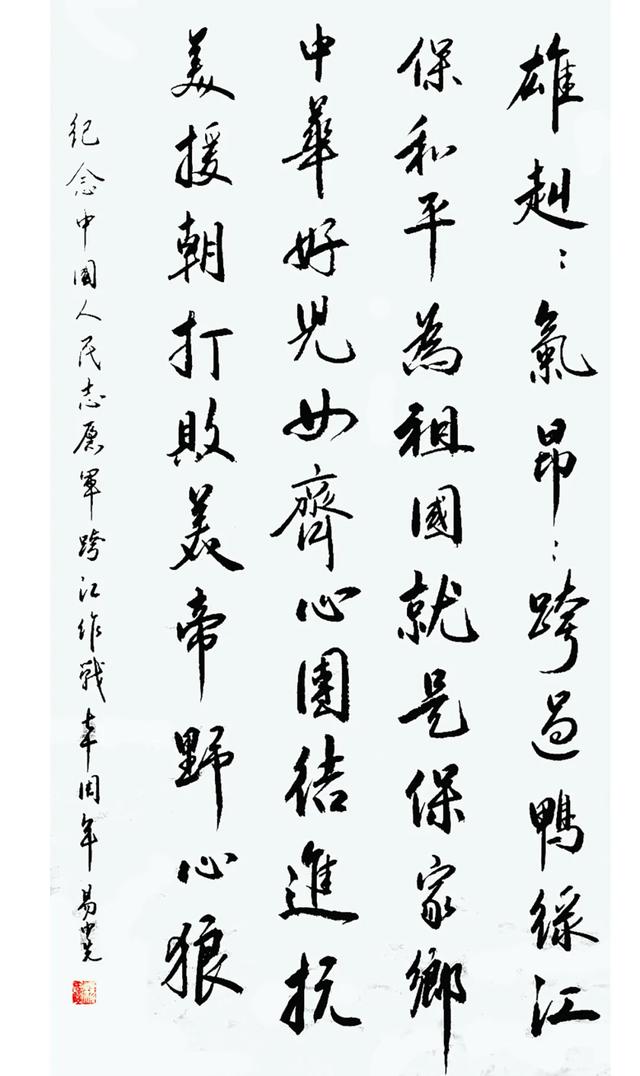 雄赳:氣昂:跨過鴨綠江
保和平為祖國就是保家鄉
中華好兒女齊心團結進抗
美援朝打敗美帝野心狼
紀念中國人民志愿軍跨江作戰七十周年 易中先